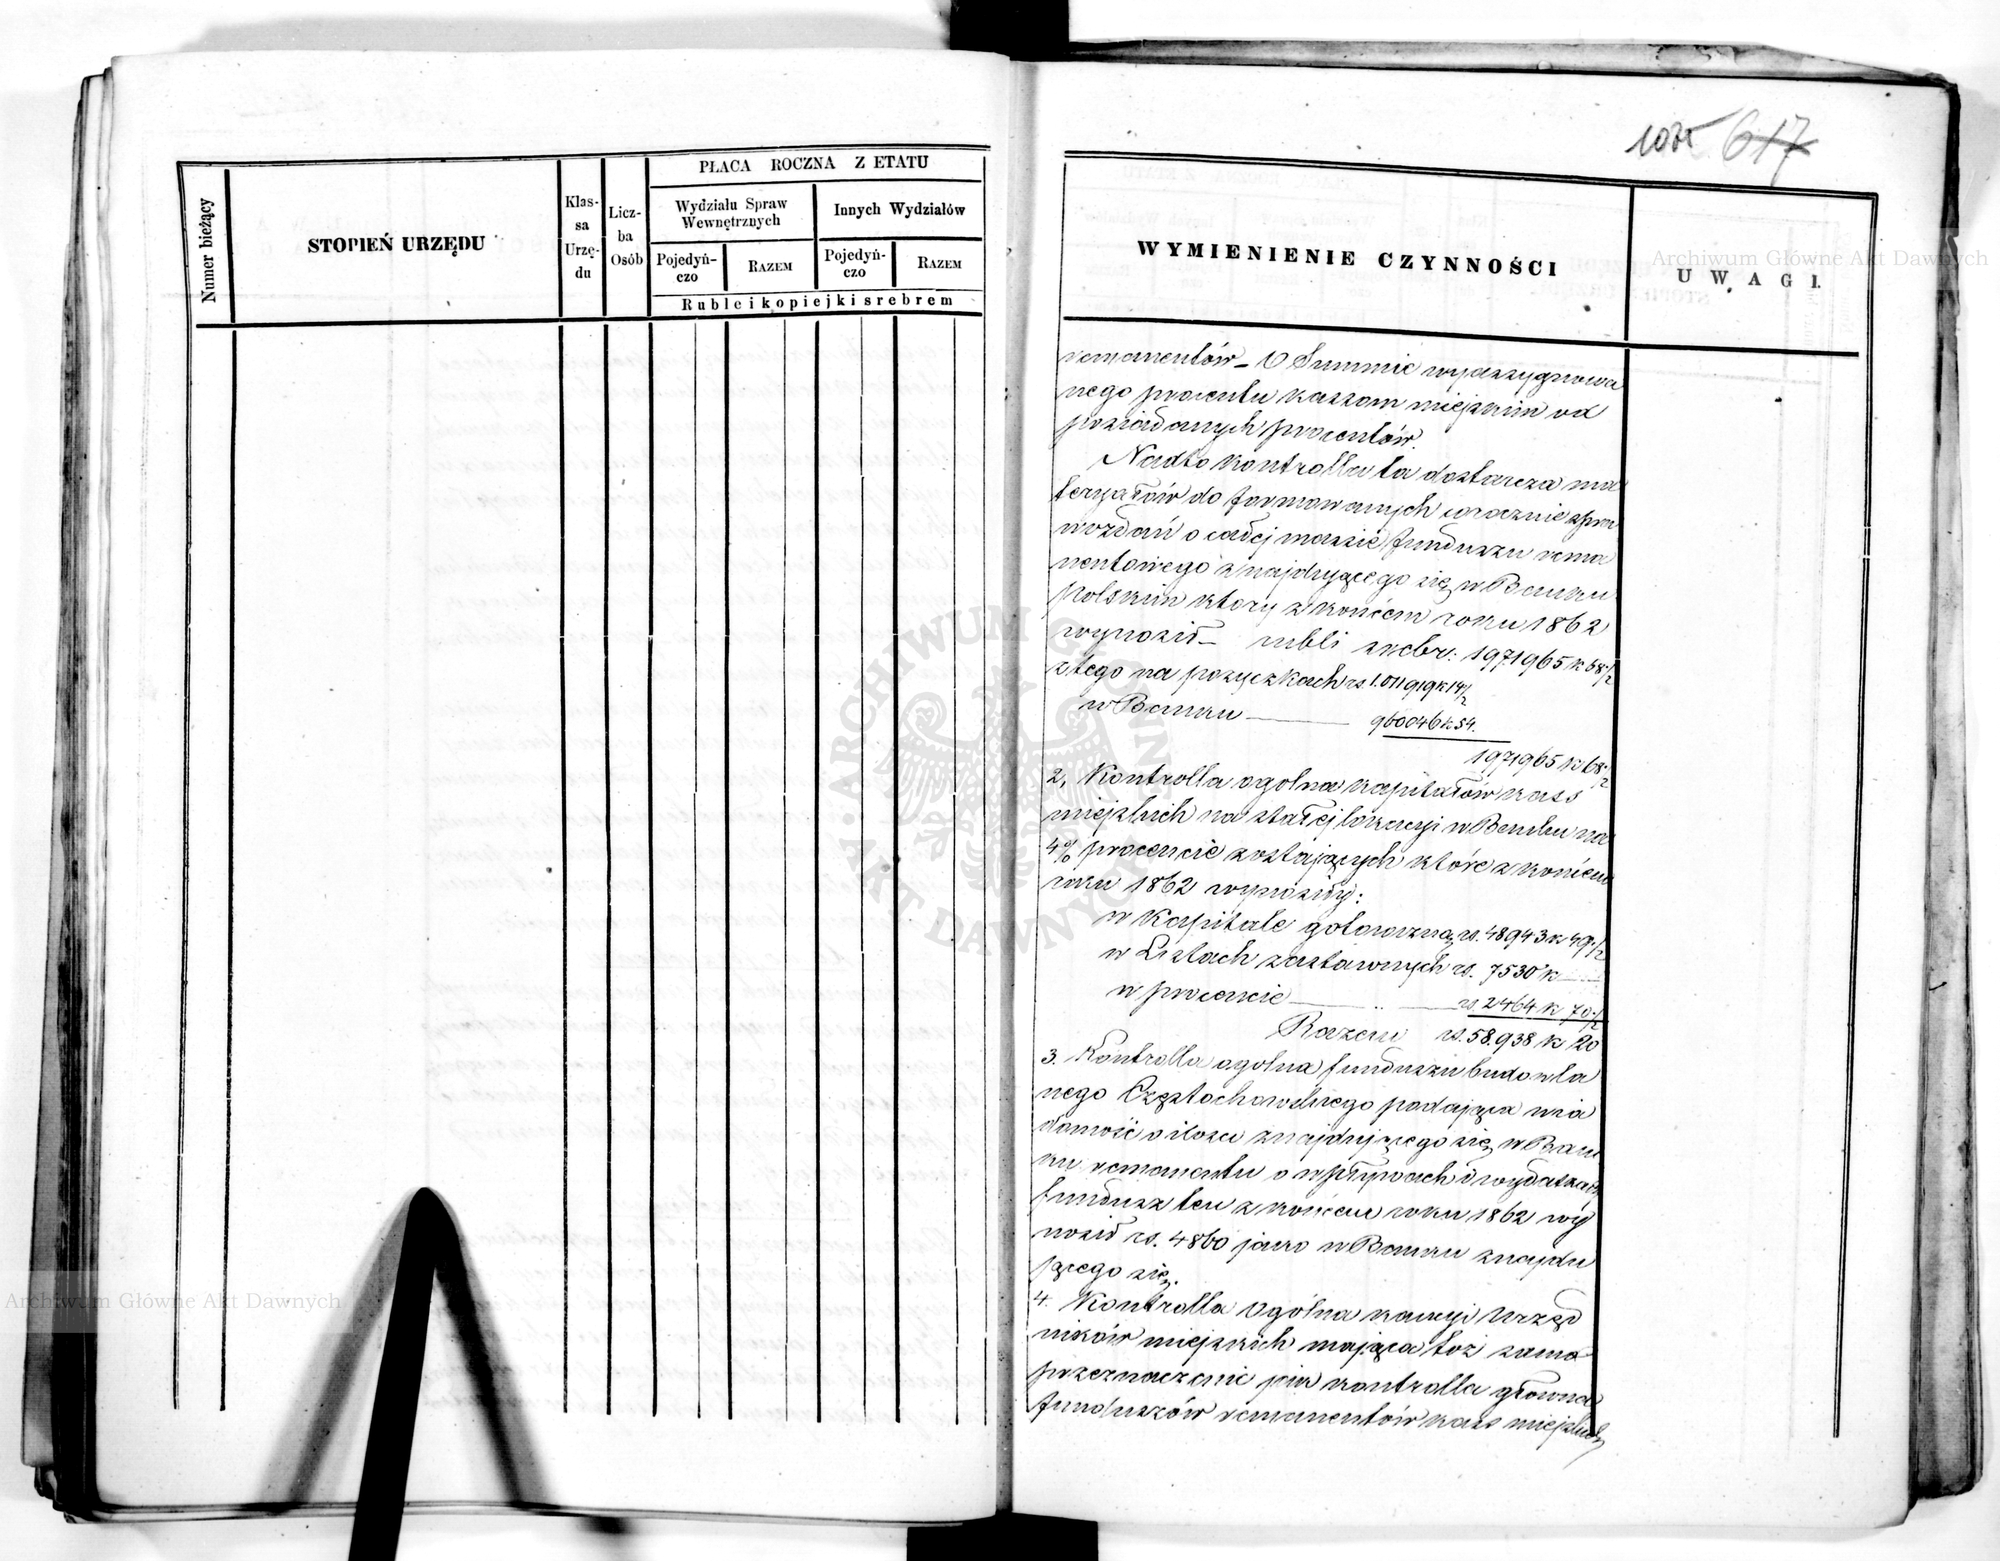 Numer bieżący
STOPIEŃ URZĘDU
Klas-
sa
Urzę-
du
Licz-
ba
Osób
PŁACA ROCZNA Z ETATU
Wydziału Spraw
Wewnętrznych
Innych Wydziałów
Pojedyń-
czo
RAZEM
Pojedyń-
czo
RAZEM
Ruble i kopiejki srebrem
617
WYMIENIENIE CZYNNOŚCI
UWAGI.
remanentów_ O Summie wyassygnowa
nego procentu kassom miejskim od
posiadanych procentów.
Nadto kontrolla ta dostarcza ma
teryałów do formowanych corocznie spra
wozdań o całej massie funduszu rema
nentowego znajdującego się w Banku
Polskim który z końcem roku 1862
wynosił_ rubli srebr: 1971965 k 68 1/2
z tego na pożyczkach rs 1.011919 k 14 1/2
w Banku 960046 k 54.
1971965 k 68 1/2
2, Kontrolla ogolna kapitałów kass
miejskich na stałej lokacyi w Banku na
4% procencie zostających które z końcem
roku 1862 wynosiły:
w Kapitale gotowizną rs. 48943 k 49 1/2
w Listach zastawnych rs. 7530 k
w procencie rs. 2464 k 70 1/2
Razem rs. 58.938 k 20
3. Kontrolla ogolna funduszu budowla
nego Częstochowskiego podająca wia
domość o ilości znajdującego się w Ban
ku remanentu o wpływach i wydatkach
fundusz ten z końcem roku 1862 wy
nosił rs. 4860 jako w Banku znajdu
jącego się.
4. Kontrolla Ogólna kaucyi Urzęd
ników miejskich mająca toż samo
przeznaczenie jak kontrolla główna
funduszów remanentów kass miejskich
ARCHIWUM GŁÓWNE AKT DAWNYCH
Archiwum Główne Akt Dawnych
Archiwum Główne Akt Dawnych